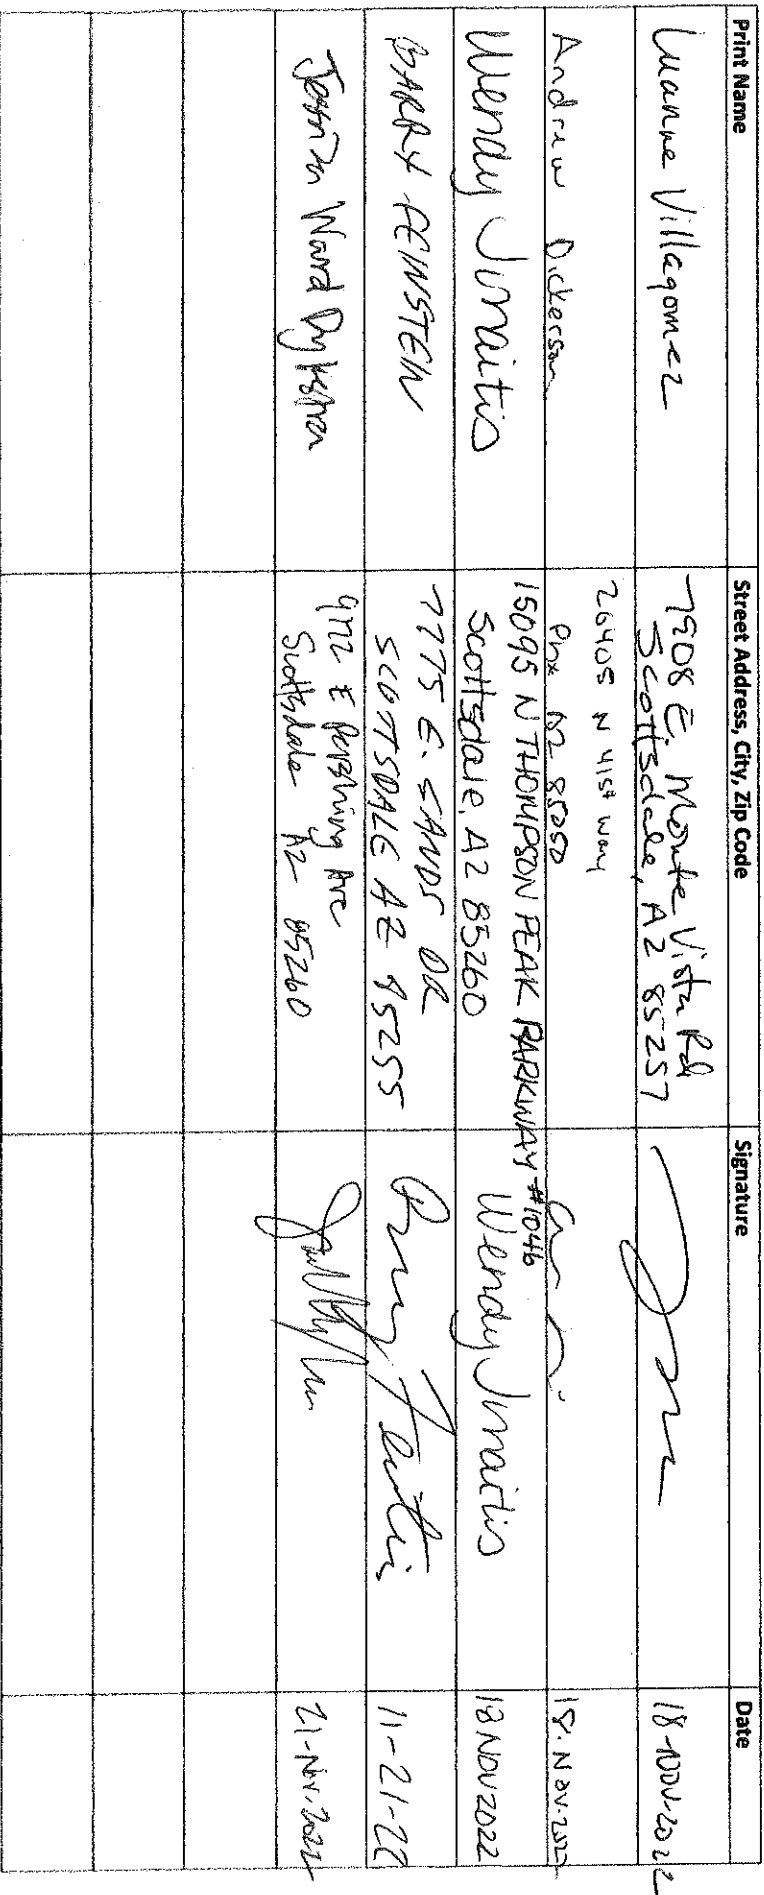 Print Name
Street Address, City, Zip Code
Signature
Date
Luanne Villagomez
7908 E. Monte Vista Rd
Scottsdale, AZ 85257
18-NOV-2022
Andrew Dickerson
26405 N 41st Way
Phx AZ 85050
18-Nov-2022
Wendy Junaitis
15095 N THOMPSON PEAK PARKWAY #1046
Scottsdale, AZ 85260
Wendy Junaitis
18 NOV 2022
BARRY FEINSTEIN
7775 E. SANDS DR
SCOTTSDALE AZ 85255
Barry Feinstein
11-21-22
Ward Dykstra
E Pershing Ave
Scottsdale AZ 85260
21-Nov-2022